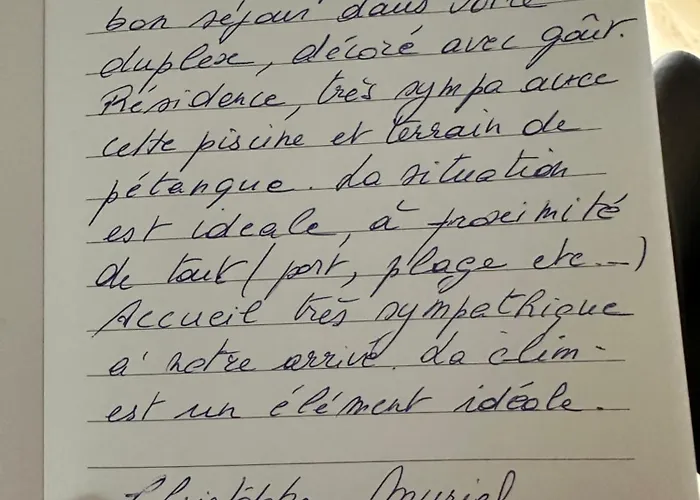 bon séjour dans votre
duplex, décoré avec goût.
Résidence, très sympa avec
cette piscine et terrain de
pétanque. La situation
est ideale, à proximité
de tout (port, plage etc...)
Accueil très sympathique
a' notre arrivé. La clim-
est un élément idéale.
Christophe Muriel